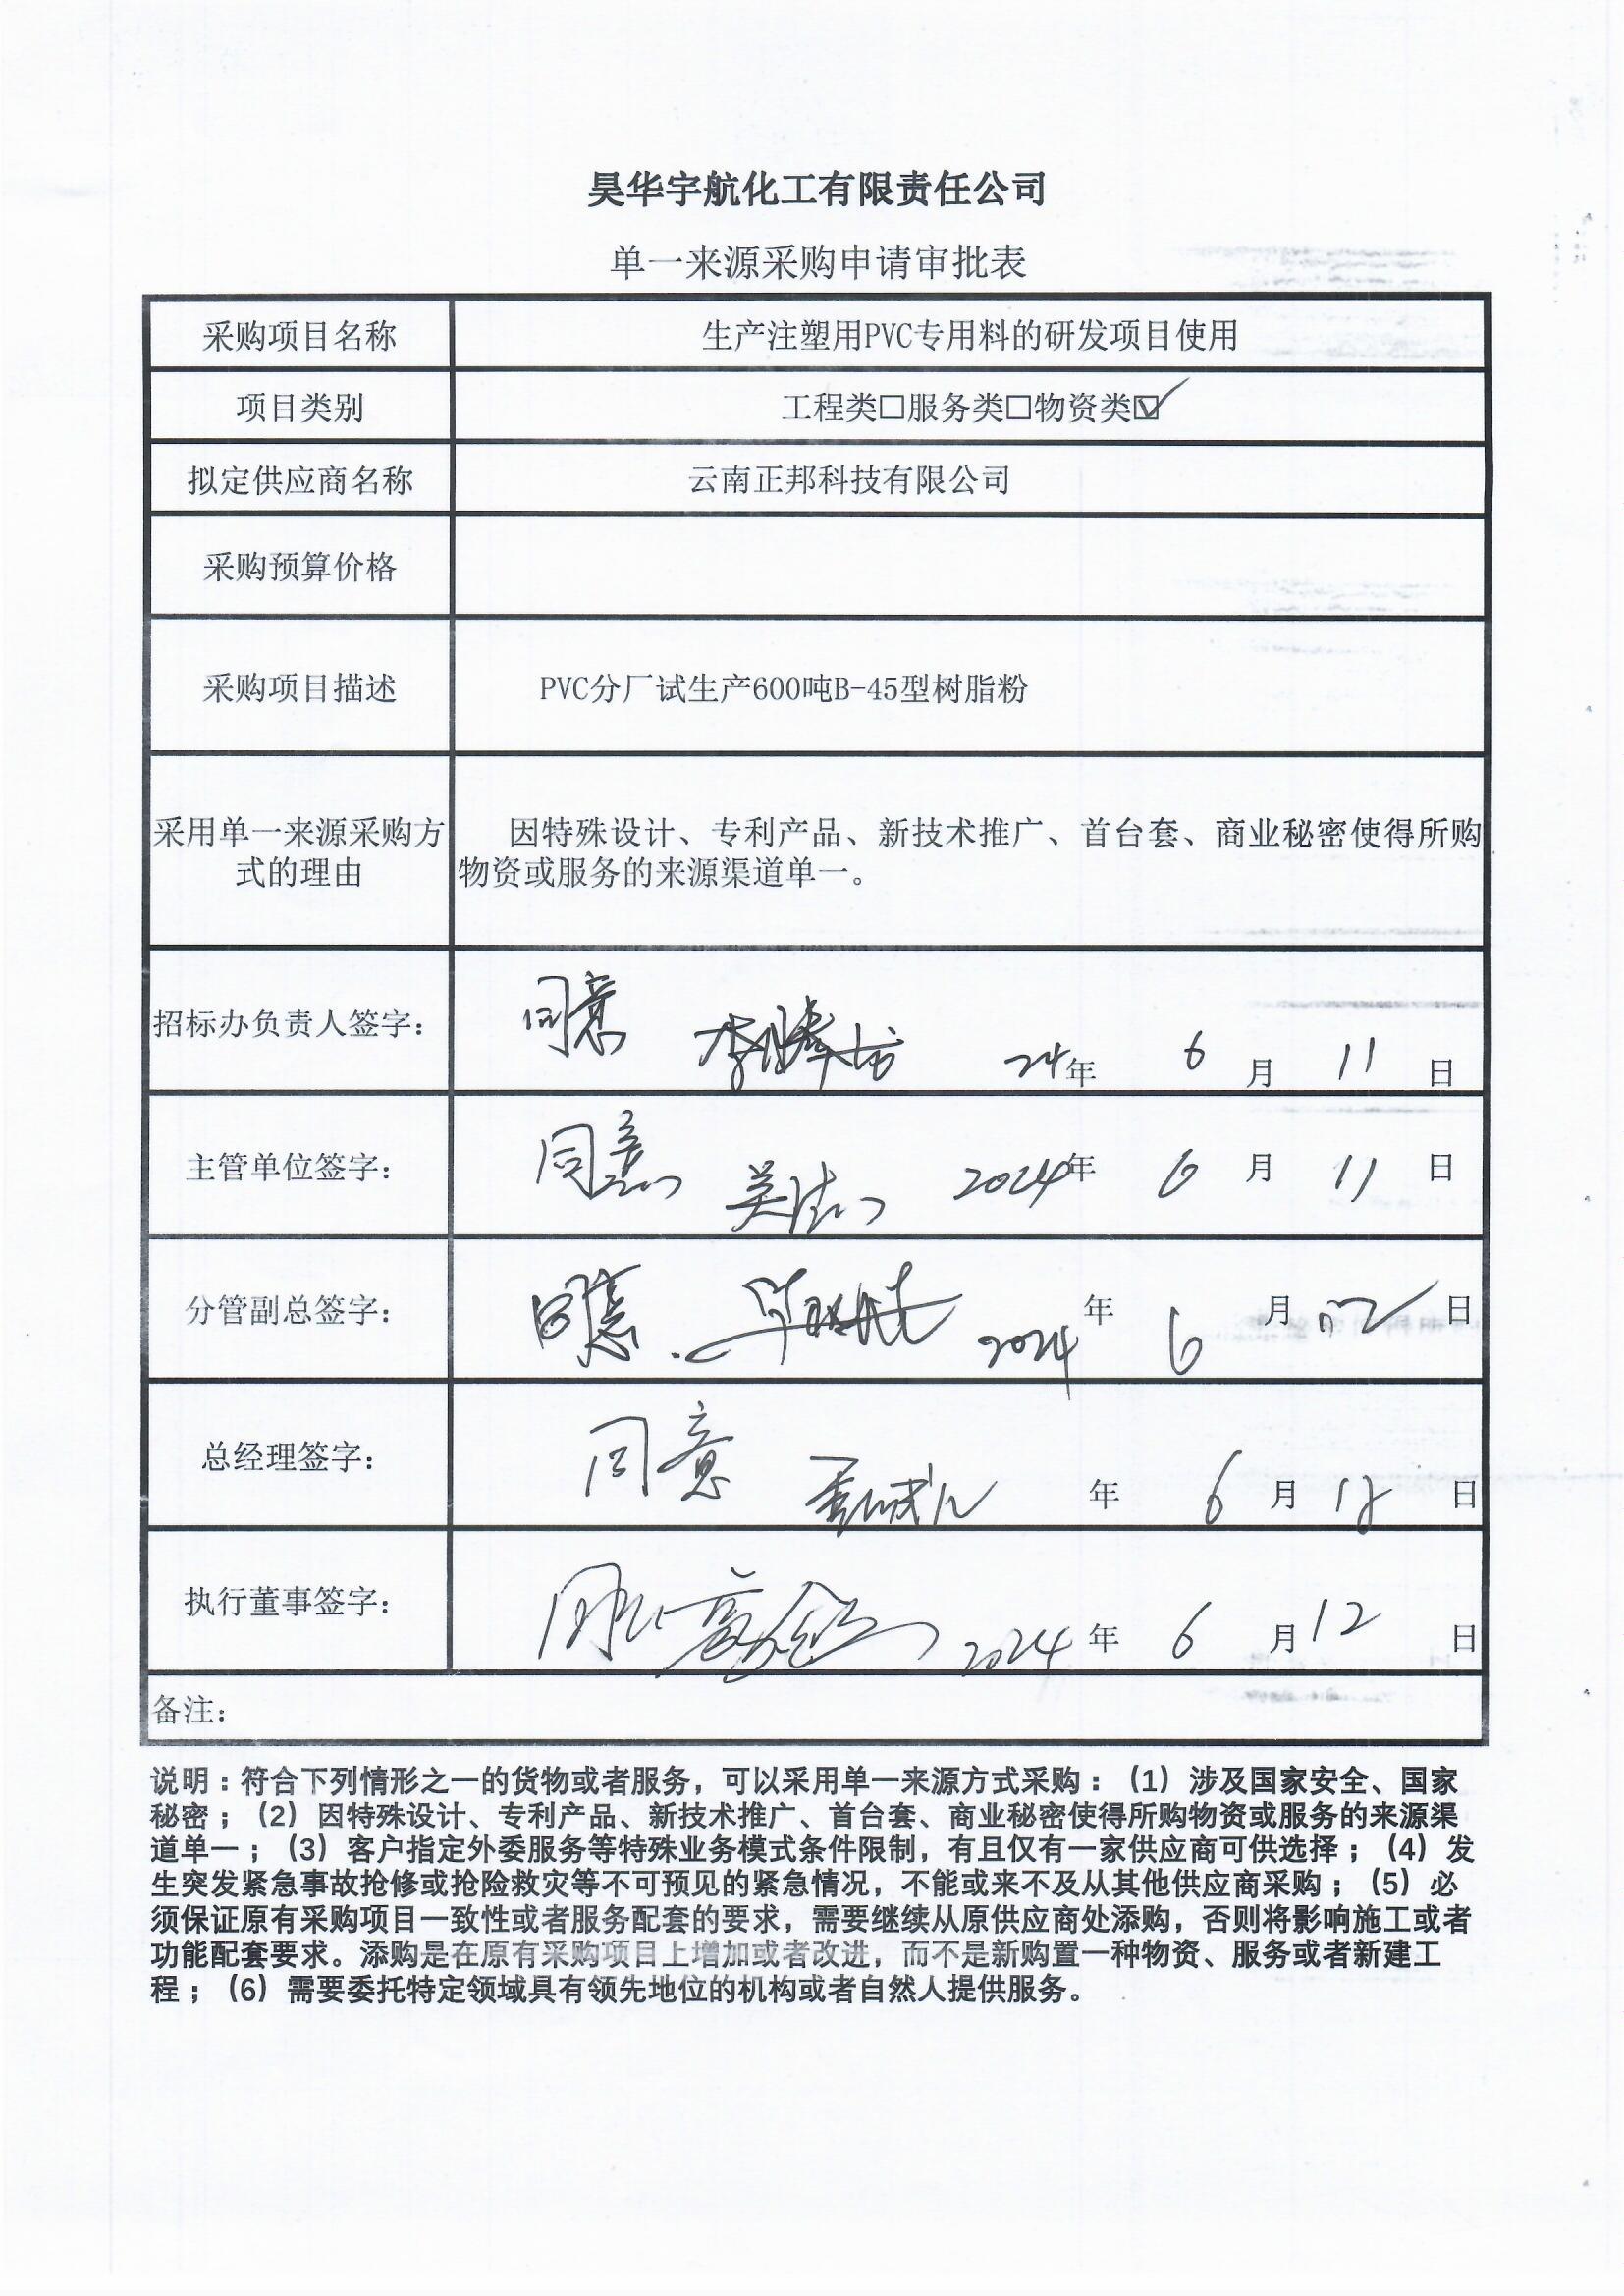 昊华宇航化工有限责任公司
单一来源采购申请审批表
采购项目名称
生产注塑用PVC专用料的研发项目使用
项目类别
工程类□服务类□物资类☑
拟定供应商名称
云南正邦科技有限公司
采购预算价格
采购项目描述
PVC分厂试生产600吨B-45型树脂粉
采用单一来源采购方
式的理由
因特殊设计、专利产品、新技术推广、首台套、商业秘密使得所购
物资或服务的来源渠道单一。
招标办负责人签字：
同意 24年 6 月 11 日
主管单位签字：
同意 2024年 6 月 11 日
分管副总签字：
同意 2024 年 6 月 日
总经理签字：
同意 年 6 月 日
执行董事签字：
2024 年 6 月 12 日
备注：
说明：符合下列情形之一的货物或者服务，可以采用单一来源方式采购：（1）涉及国家安全、国家
秘密；（2）因特殊设计、专利产品、新技术推广、首台套、商业秘密使得所购物资或服务的来源渠
道单一；（3）客户指定外委服务等特殊业务模式条件限制，有且仅有一家供应商可供选择；（4）发
生突发紧急事故抢修或抢险救灾等不可预见的紧急情况，不能或来不及从其他供应商采购；（5）必
须保证原有采购项目一致性或者服务配套的要求，需要继续从原供应商处添购，否则将影响施工或者
功能配套要求。添购是在原有采购项目上增加或者改进，而不是新购置一种物资、服务或者新建工
程；（6）需要委托特定领域具有领先地位的机构或者自然人提供服务。